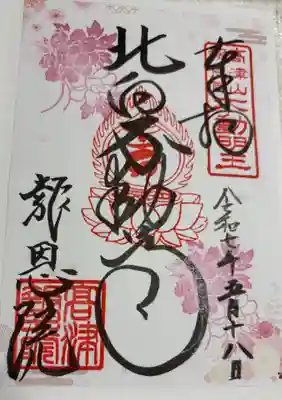 奉拝
高津山
北向不動
令和七年五月十八日
報恩院
高津